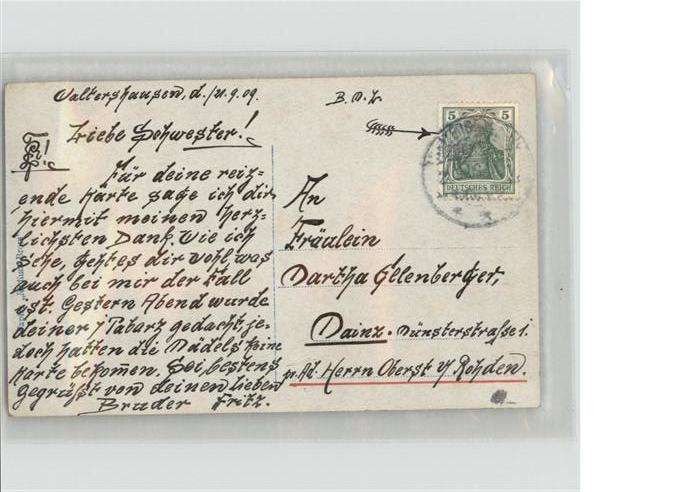 Waltershausen, d. 21.9.09.
B. D. L.
Liebe Schwester!
Für deine reiz-
ende Karte sage ich dir
hiermit meinen herz-
lichsten Dank. Wie ich
sehe, geht es dir wohl, was
auch bei mir der Fall
ist. Gestern Abend wurde
deiner i/ Tabarz gedacht, je-
doch hatten die Mädels keine
Karte bekomen. Sei bestens
gegrüßt von deinen lieben
Bruder Fritz.
5 5
DEUTSCHES REICH
An
Fräulein
Martha Ellenberger,
Mainz. Münsterstraße 1.
pr. Ad. Herrn Oberst v/ Rohden.